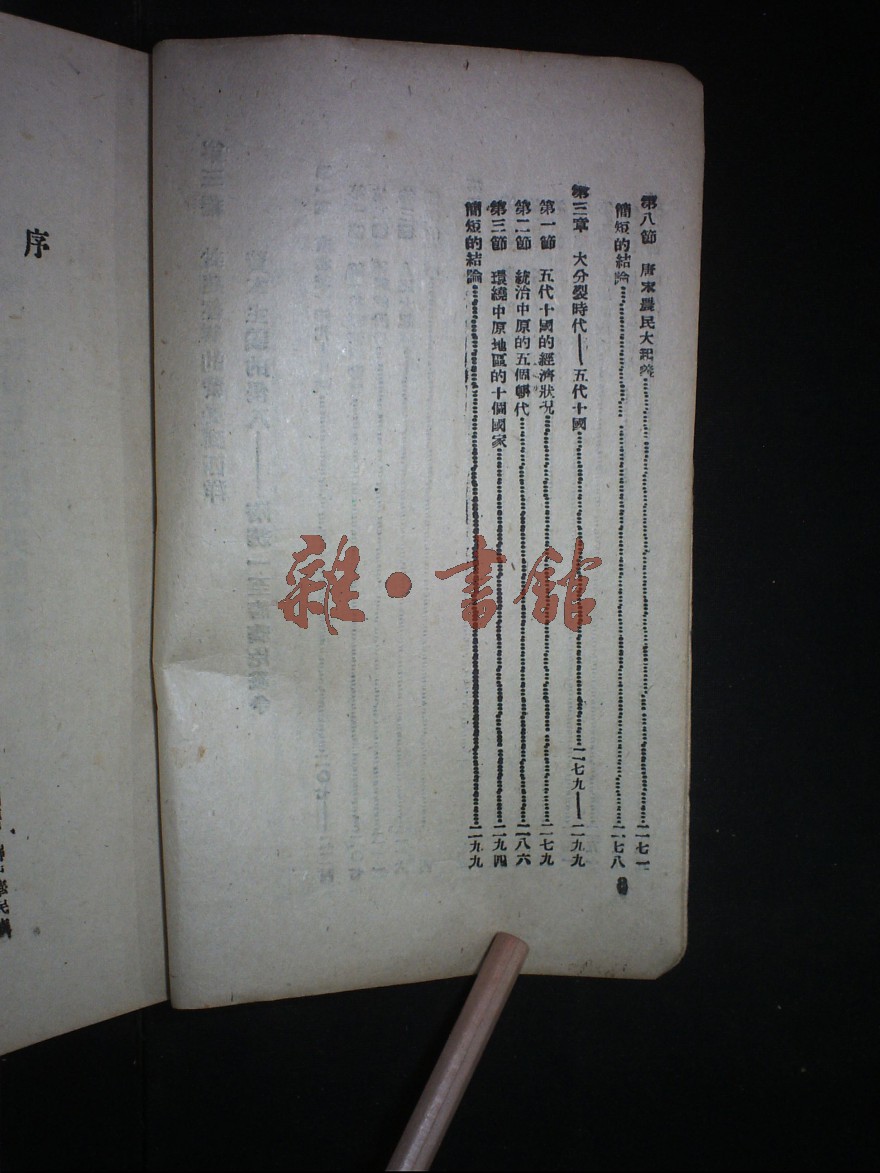 第八節 唐末農民大起義……二七一
簡短的結論……二七八
第三章 大分裂時代——五代十國……二七九——二九九
第一節 五代十國的經濟狀况……二七九
第二節 統治中原的五個朝代……二八六
第三節 環繞中原地區的十個國家……二九四
簡短的結論……二九九
序
雜·書館